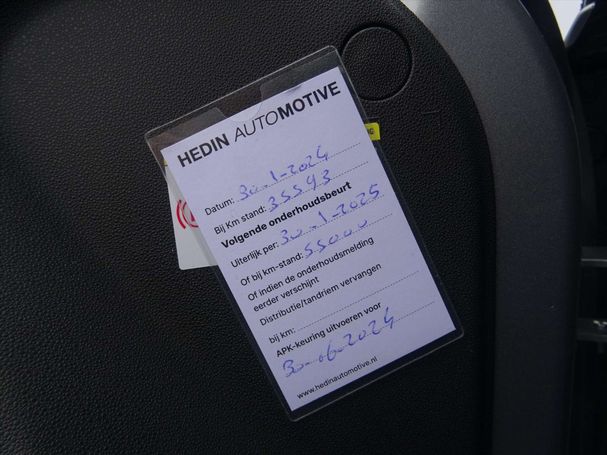 HEDIN AUTOMOTIVE
Datum: 30-1-2024
Bij Km stand: 35593
Volgende onderhoudsbeurt
Uiterlijk per: 30-1-2025
Of bij km-stand: 55000
Of indien de onderhoudsmelding
eerder verschijnt
Distributie/tandriem vervangen
bij km:
APK-keuring uitvoeren voor
30-06-2024
www.hedinautomotive.nl